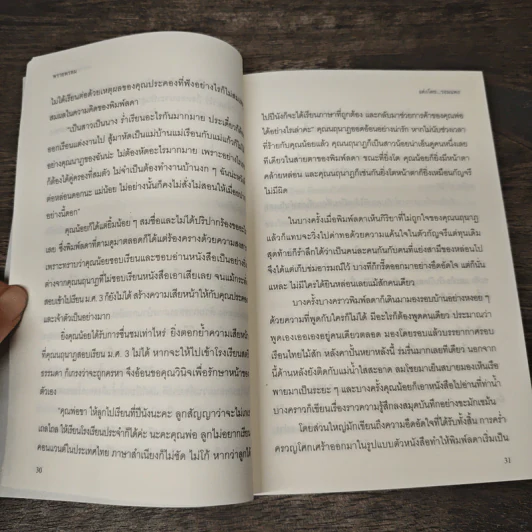 ไม่ได้เรียนต่อด้วยเหตุผลของคุณประคองที่ฟังอย่างไรก็ไม่สม
สมผลในความคิดของพิมพ์ลดา
"เป็นสาวเป็นนาง ร่ำเรียนอะไรกันมากมาย ประเดี๋ยวก็ต้อง
ออกเรือนแต่งงานไป สู้มาหัดเป็นแม่บ้านแม่เรือนกับแม่แก้วกัน
อย่างคุณนาฏของฉันน่ะ ไม่ต้องหัดอะไรมากมาย เพราะอย่างไร
ก็ต้องได้คู่ครองที่สมตัว ไม่จำเป็นต้องทำงานบ้านงก ๆ ฉันน่ะหวังดี
ต่อหล่อนดอกนะ แม่น้อย ไม่อย่างนั้นก็คงไม่สั่งไม่สอนให้เมื่อย
อย่างนี้ดอก"
คุณน้อยก็ได้แต่ยิ้มน้อย ๆ สมชื่อและไม่ได้ปริปากร้องขออะไร
เลย ซึ่งพิมพ์ลดาที่ตามดูมาตลอดก็ได้แต่ร้องครางด้วยความสงสาร
เพราะทราบว่าคุณน้อยชอบเรียนและชอบอ่านหนังสือเป็นอย่าง
ต่างจากคุณนาฏที่ไม่ชอบเรียนหนังสือเอาเสียเลย จนแม้กระทั่ง
สอบเข้าไปเรียน ม.ศ. 3 ก็ยังไม่ได้ สร้างความเสียหน้าให้กับคุณประคอง
และเจ้าตัวเป็นอย่างมาก
ยิ่งคุณน้อยได้รับการชื่นชมเท่าไหร่ ยิ่งตอกย้ำความเสียหน้า
ที่คุณนาฏสอบเรียน ม.ศ. 3 ไม่ได้ หากจะให้ไปเข้าโรงเรียนสตรี
ธรรมดา ก็เกรงว่าจะถูกครหา จึงอ้อนขอคุณวินิจเพื่อรักษาหน้าของ
ตัวเอง
"คุณพ่อขา ให้ลูกไปเรียนที่ปีนังนะคะ ลูกสัญญาว่าจะไม่เก
เกลไกล ให้เรียนโรงเรียนประจำก็ได้ค่ะ นะคะคุณพ่อ ลูกไม่อยากเรียน
คอนแวนต์ในประเทศไทย ภาษาสำเนียงก็ไม่ชัด ไม่โก้ หากว่าลูกได้
30
ไปปีนังก็จะได้เรียนภาษาที่ถูกต้อง และกลับมาช่วยการค้าของคุณพ่อ
ได้อย่างไรเล่าค่ะ" คุณนาฏออดอ้อนอย่างน่ารัก หากไม่นับช่วงเวลา
ที่ร้ายกับคุณน้อยแล้ว คุณนาฏก็เป็นสาวน้อยน่าเอ็นดูคนหนึ่งเลย
ทีเดียวในสายตาของพิมพ์ลดา ขณะที่ยิ่งโต คุณน้อยก็ยิ่งมีหน้าตา
คล้ายหล่อน และคุณนาฏก็เช่นกันยิ่งโตใบหน้าก็ยิ่งเหมือนกัญจรี
ไม่มีผิด
ในบางครั้งเมื่อพิมพ์ลดาเห็นกิริยาที่ไม่ถูกใจของคุณนาฏ
แล้วก็แทบจะวิ่งไปด่าทอด้วยความแค้นใจในตัวกัญจรีแต่ทุนเดิม
สุดท้ายก็รำลึกได้ว่าเป็นคนละคนกันกับคนที่แย่งสามีของหล่อนไป
จึงได้แต่เก็บข่มอารมณ์ไว้ บางทีก็กรี๊ดออกมาอย่างอึดอัดใจ แต่ก็นั่น
แหละ ไม่มีใครได้ยินหล่อนเลยแม้สักคนเดียว
บางครั้งบางคราวพิมพ์ลดาก็เดินมามองรอบบ้านอย่างหงอย ๆ
ด้วยความที่พูดกับใครก็ไม่ได้ มีอะไรก็ต้องพูดคนเดียว ประมาณว่า
พูดเองเออเองอยู่คนเดียวตลอด มองโดยรอบแล้วบรรยากาศรอบ
เรือนไทยไม้สัก หลังคาปั้นหยาหลังนี้ ร่มรื่นมากเลยทีเดียว นอกจาก
นี้ด้านหลังยังติดกับแม่น้ำใสสะอาด ลมโชยมาเย็นสบายมองเห็นเรือ
พายมาเป็นระยะ ๆ และบางครั้งคุณน้อยก็เอาหนังสือไปอ่านที่ท่าน้ำ
บางคราวก็เขียนเรื่องราวความรู้สึกลงสมุดบันทึกอย่างขะมักเขม้น
โดยส่วนใหญ่มักเขียนถึงความอึดอัดใจที่ได้รับทั้งสิ้น การคร่ำ
ครวญโศกเศร้าออกมาในรูปแบบตัวหนังสือทำให้พิมพ์ลดาเริ่มเป็น
31